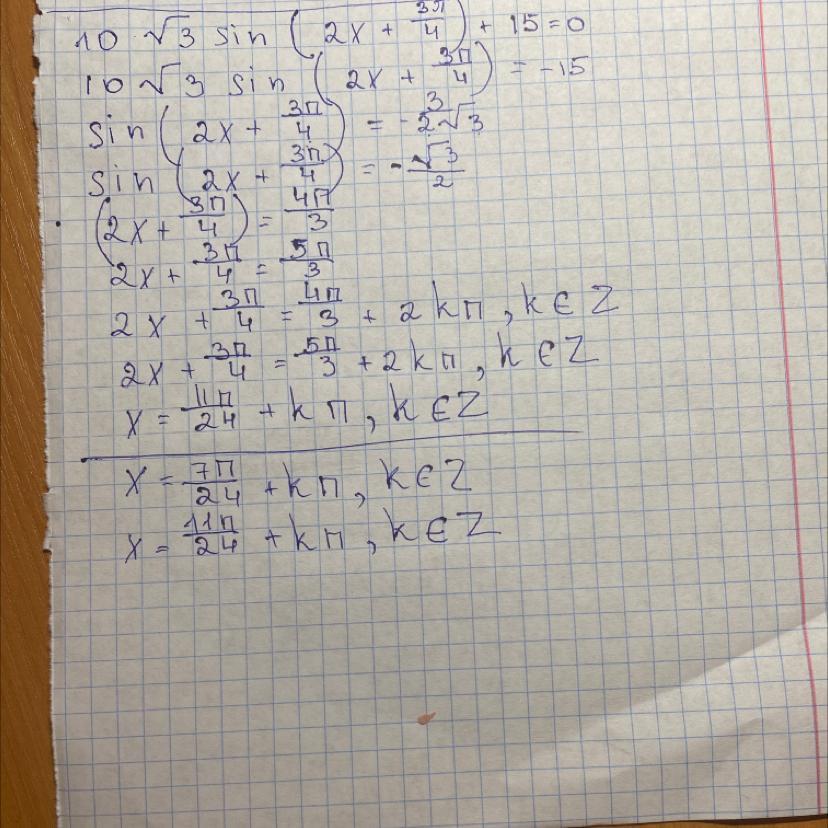 10 √3 sin (2x + 3π/4) + 15 = 0
10 √3 sin (2x + 3π/4) = -15
sin (2x + 3π/4) = - 3/2√3
sin (2x + 3π/4) = - √3/2
(2x + 3π/4) = 4π/3
2x + 3π/4 = 5π/3
2x + 3π/4 = 4π/3 + 2kπ, k ∈ Z
2x + 3π/4 = 5π/3 + 2kπ, k ∈ Z
x = 11π/24 + kπ, k ∈ Z
x = 7π/24 + kπ, k ∈ Z
x = 11π/24 + kπ, k ∈ Z